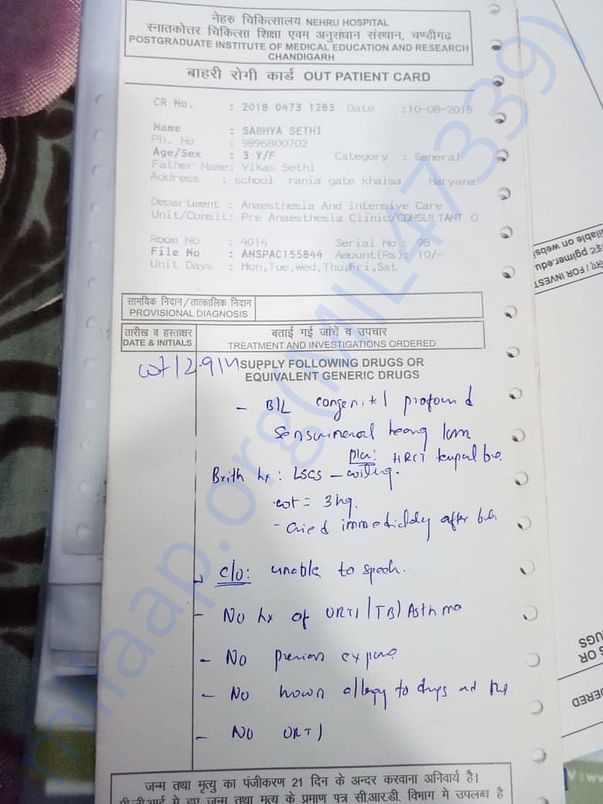 नेहरु चिकित्सालय NEHRU HOSPITAL
स्नातकोत्तर चिकित्सा शिक्षा एवम अनुसंधान संस्थान, चण्डीगढ़
POSTGRADUATE INSTITUTE OF MEDICAL EDUCATION AND RESEARCH
CHANDIGARH
बाहरी रोगी कार्ड OUT PATIENT CARD
CR No. : 2018 0473 1283 Date :10-08-2018
Name : SABHYA SETHI
Ph. No : 9896800702
Age/Sex : 3 Y/F Category : General
Father Name: Vikas Sethi
Address : school rania gate khalsa Haryana
Department : Anaesthesia And Intensive Care
Unit/Consult: Pre Anaesthesia Clinic/CONSULTANT O
Room No : 4014 Serial No : 96
File No : ANSPAC155844 Amount(Rs): 10/-
Unit Days : Mon,Tue,Wed,Thu,Fri,Sat
सामयिक निदान/तात्कालिक निदान
PROVISIONAL DIAGNOSIS
तारीख व हस्ताक्षर
DATE & INITIALS
बताई गई जाँच व उपचार
TREATMENT AND INVESTIGATIONS ORDERED
SUPPLY FOLLOWING DRUGS OR
EQUIVALENT GENERIC DRUGS
- B/L congenital profound
sensorineural hearing loss
Plan: HRCT temporal
Brith hx: LSCS
wt = 3 kg.
- cried immediately after
c/o: unable to speech.
- No hx of URTI/TB/Asthma
- No previous
- No known allegy to drugs
- No URTI
जन्म तथा मृत्यु का पंजीकरण 21 दिन के अन्दर करवाना अनिवार्य है।
milaap.org(MIL47339)